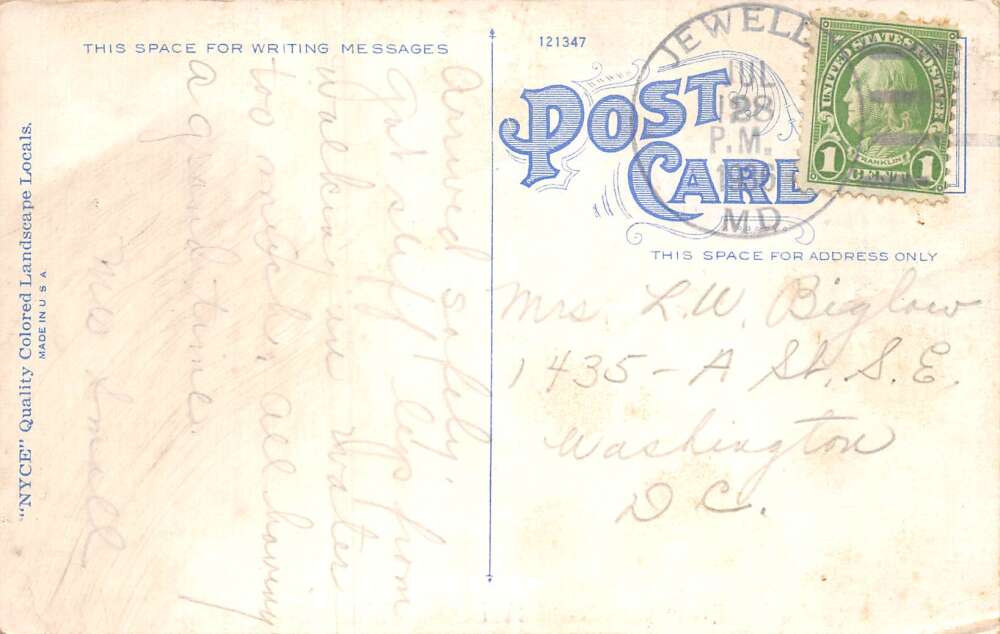 THIS SPACE FOR WRITING MESSAGES
"NYCE" Quality Colored Landscape Locals.
MADE IN U S A
Arrived safely,
Got stiff legs from
walking in water
too much. all having
a grand time.
Mrs Small
121347
POST CARD
JEWELL
JUL
28
P.M.
M.D.
UNITED STATES POSTAGE
FRANKLIN
1 CENT 1
THIS SPACE FOR ADDRESS ONLY
Mrs. L.W. Biglow
1435 - A St. S.E.
Washington
D C.